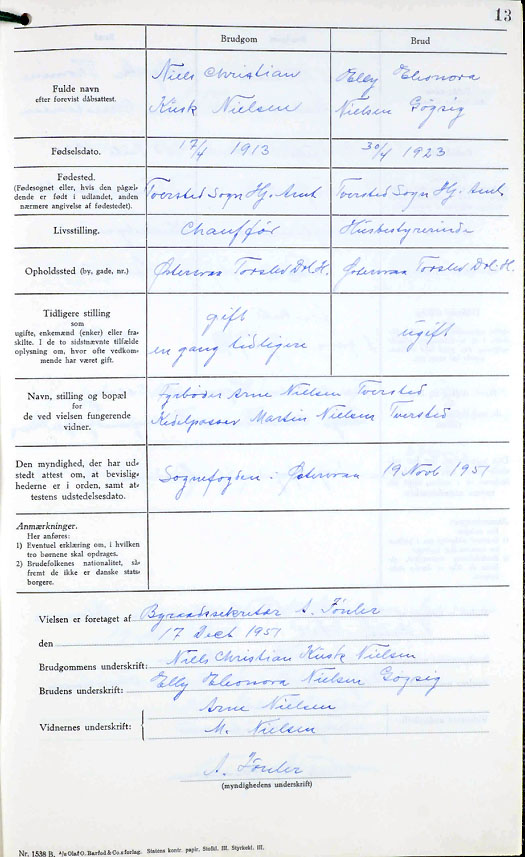 13
Brudgom
Brud
Fulde navn
efter forevist dåbsattest.
Niels Christian
Kusk Nielsen
Elly Eleonora
Nielsen Gøgsig
Fødselsdato.
17/4 1913
30/4 1923
Fødested.
(Fødesognet eller, hvis den pågæl-
dende er født i udlandet, anden
nærmere angivelse af fødestedet).
Tversted Sogn Hj. Amt
Tversted Sogn Hj. Amt.
Livsstilling.
Chauffør
Husbestyrerinde
Opholdssted (by, gade, nr.)
Østervraa Torslev Dol. H.
Østervraa Torslev Dol. H.
Tidligere stilling
som
ugifte, enkemænd (enker) eller fra-
skilte. I de to sidstnævnte tilfælde
oplysning om, hvor ofte vedkom-
mende har været gift.
gift
en gang tidligere
ugift
Navn, stilling og bopæl
for
de ved vielsen fungerende
vidner.
Fyrbøder Arne Nielsen Tversted
Kedelpasser Martin Nielsen Tversted
Den myndighed, der har ud-
stedt attest om, at bevislig-
hederne er i orden, samt at-
testens udstedelsesdato.
Sognefogden i Østervraa 19 Novb 1951
Anmærkninger.
Her anføres:
1) Eventuel erklæring om, i hvilken
tro børnene skal opdrages.
2) Brudefolkenes nationalitet, så-
fremt de ikke er danske stats-
borgere.
Vielsen er foretaget af Byraadssekretær A.
den 17 Decb 1951
Brudgommens underskrift: Niels Christian Kusk Nielsen
Brudens underskrift: Elly Eleonora Nielsen Gøgsig
Vidnernes underskrift:
Arne Nielsen
M. Nielsen
A.
(myndighedens underskrift)
Nr. 1538 B. A/s Olaf O. Barfod & Co.s forlag. Statens kontr. papir, Stofkl. III. Styrkekl. III.